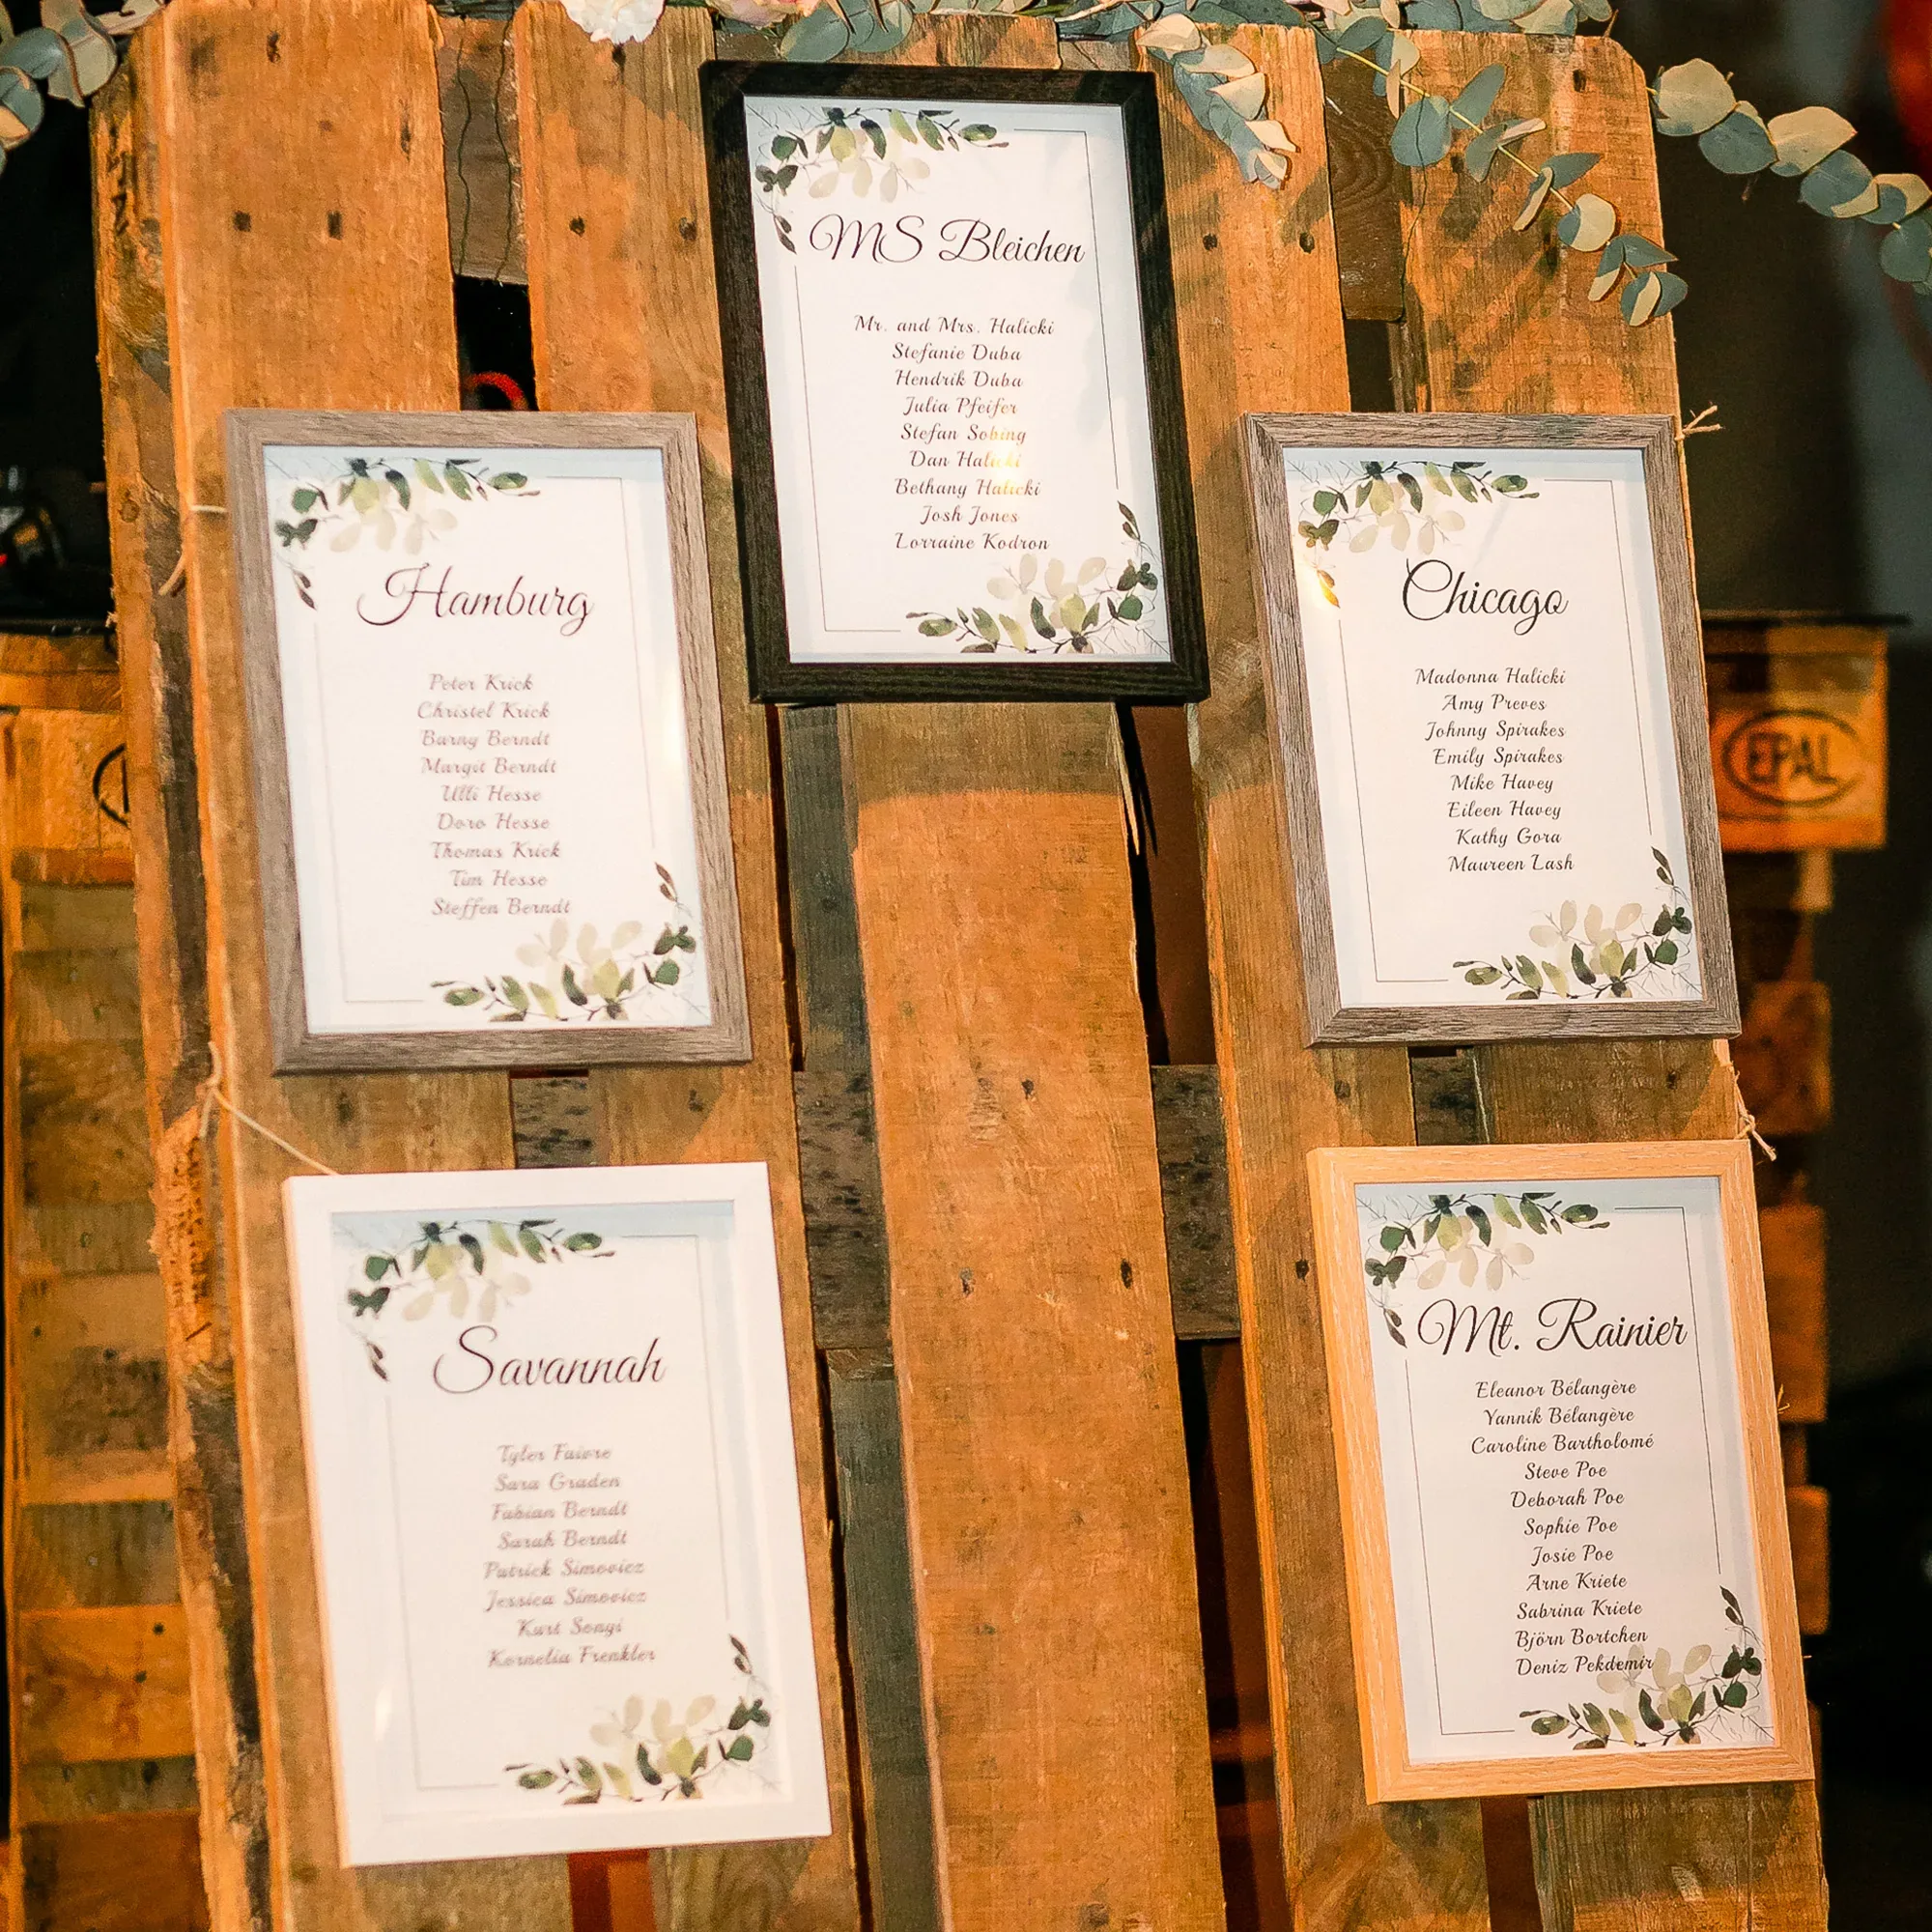 MS Bleichen
Mr. and Mrs. Halicki
Stefanie Duba
Hendrik Duba
Julia Pfeifer
Stefan Sobing
Dan Halicki
Bethany Halicki
Josh Jones
Lorraine Kodron
Hamburg
Peter Krick
Christel Krick
Barny Berndt
Margit Berndt
Ulli Hesse
Doro Hesse
Thomas Krick
Tim Hesse
Steffen Berndt
Chicago
Madonna Halicki
Amy Preves
Johnny Spirakes
Emily Spirakes
Mike Havey
Eileen Havey
Kathy Gora
Maureen Lash
EPAL
Savannah
Tyler Faivre
Sara Graden
Fabian Berndt
Sarah Berndt
Patrick Simovicz
Jessica Simovicz
Kurt Songi
Kornelia Frenkler
Mt. Rainier
Eleanor Bélangère
Yannik Bélangère
Caroline Bartholomé
Steve Poe
Deborah Poe
Sophie Poe
Josie Poe
Arne Kriete
Sabrina Kriete
Björn Bortchen
Deniz Pekdemir